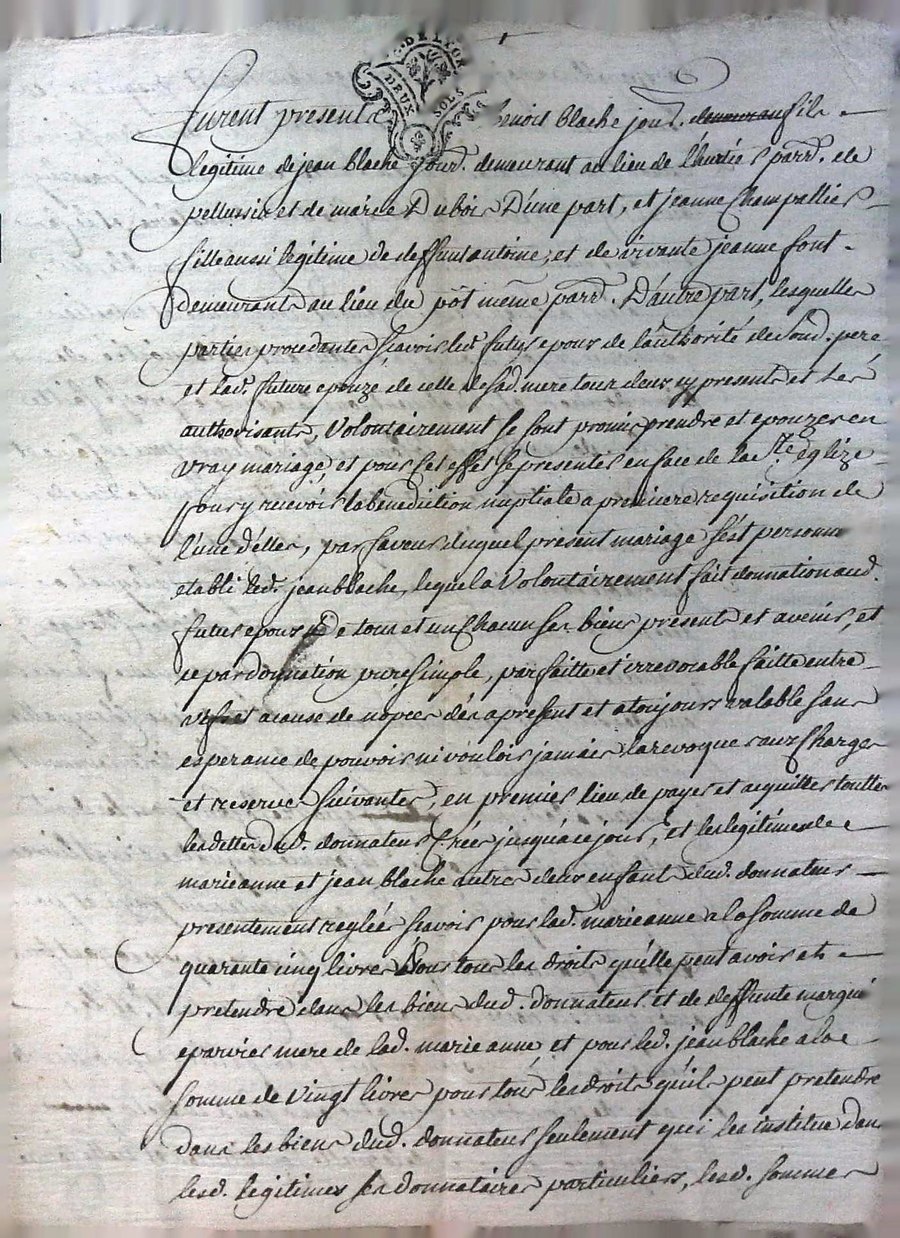 DE LYON
DEUX SOLS
furent presents benoit blache jour. demeurant fils
legitime de jean blache jour. demeurant au lieu de parr. de
pellussin et de marie Dubois D'une part, et jeanne Champallier
fille aussi legitime de deffunt antoine, et de vivante jeanne font
demeurants au lieu du pôt même parr. D'autre part, lesquelles
parties procedantes scavoir led. futur epoux de l'authorité de sond. pere
et lad. future epouze de celle de sad. mere tous deux cy presents et les
authorisants, Volontairement se sont promis prendre et epouzer en
vray mariage, et pour cet effet se presenter en face de la ste. eglize
pour y recevoir la benediction nuptiale a premiere requisition de
l'une d'elles, par faveur duquel present mariage s'est personn.
etabli led. jean blache, lequel a Volontairement fait donnation aud.
futur epoux de tous et un Chacun ses biens presents et avenir, et
ce par donnation pure simple, parfaitte et irrevocable faitte entre
vifs et acause de nopces dès apresent et atoujours valable sans
esperance de pouvoir ni vouloir jamais la revoquer aux Charges
et reserves suivantes, en premier lieu de payer et acquitter touttes
les dettes dud. donnateur Créés jusquà ce jour, et les legitimes de
marieanne et jean blache autres deux enfants dud. donnateur
presentement reglées scavoir pour lad. marieanne a la somme de
quarente cinq livres pour tous les droits qu'elle peut avoir et
pretendre dans les biens dud. donnateur et de deffunte
eparvier mere de lad. marieanne et pour led. jean blache a la
somme de vingt livres pour tous les droits qu'il peut pretendre
dans les biens dud. donnateur seulement qui les institue dans
lesd. legitimes ses donnataires particuliers, lesd. sommes